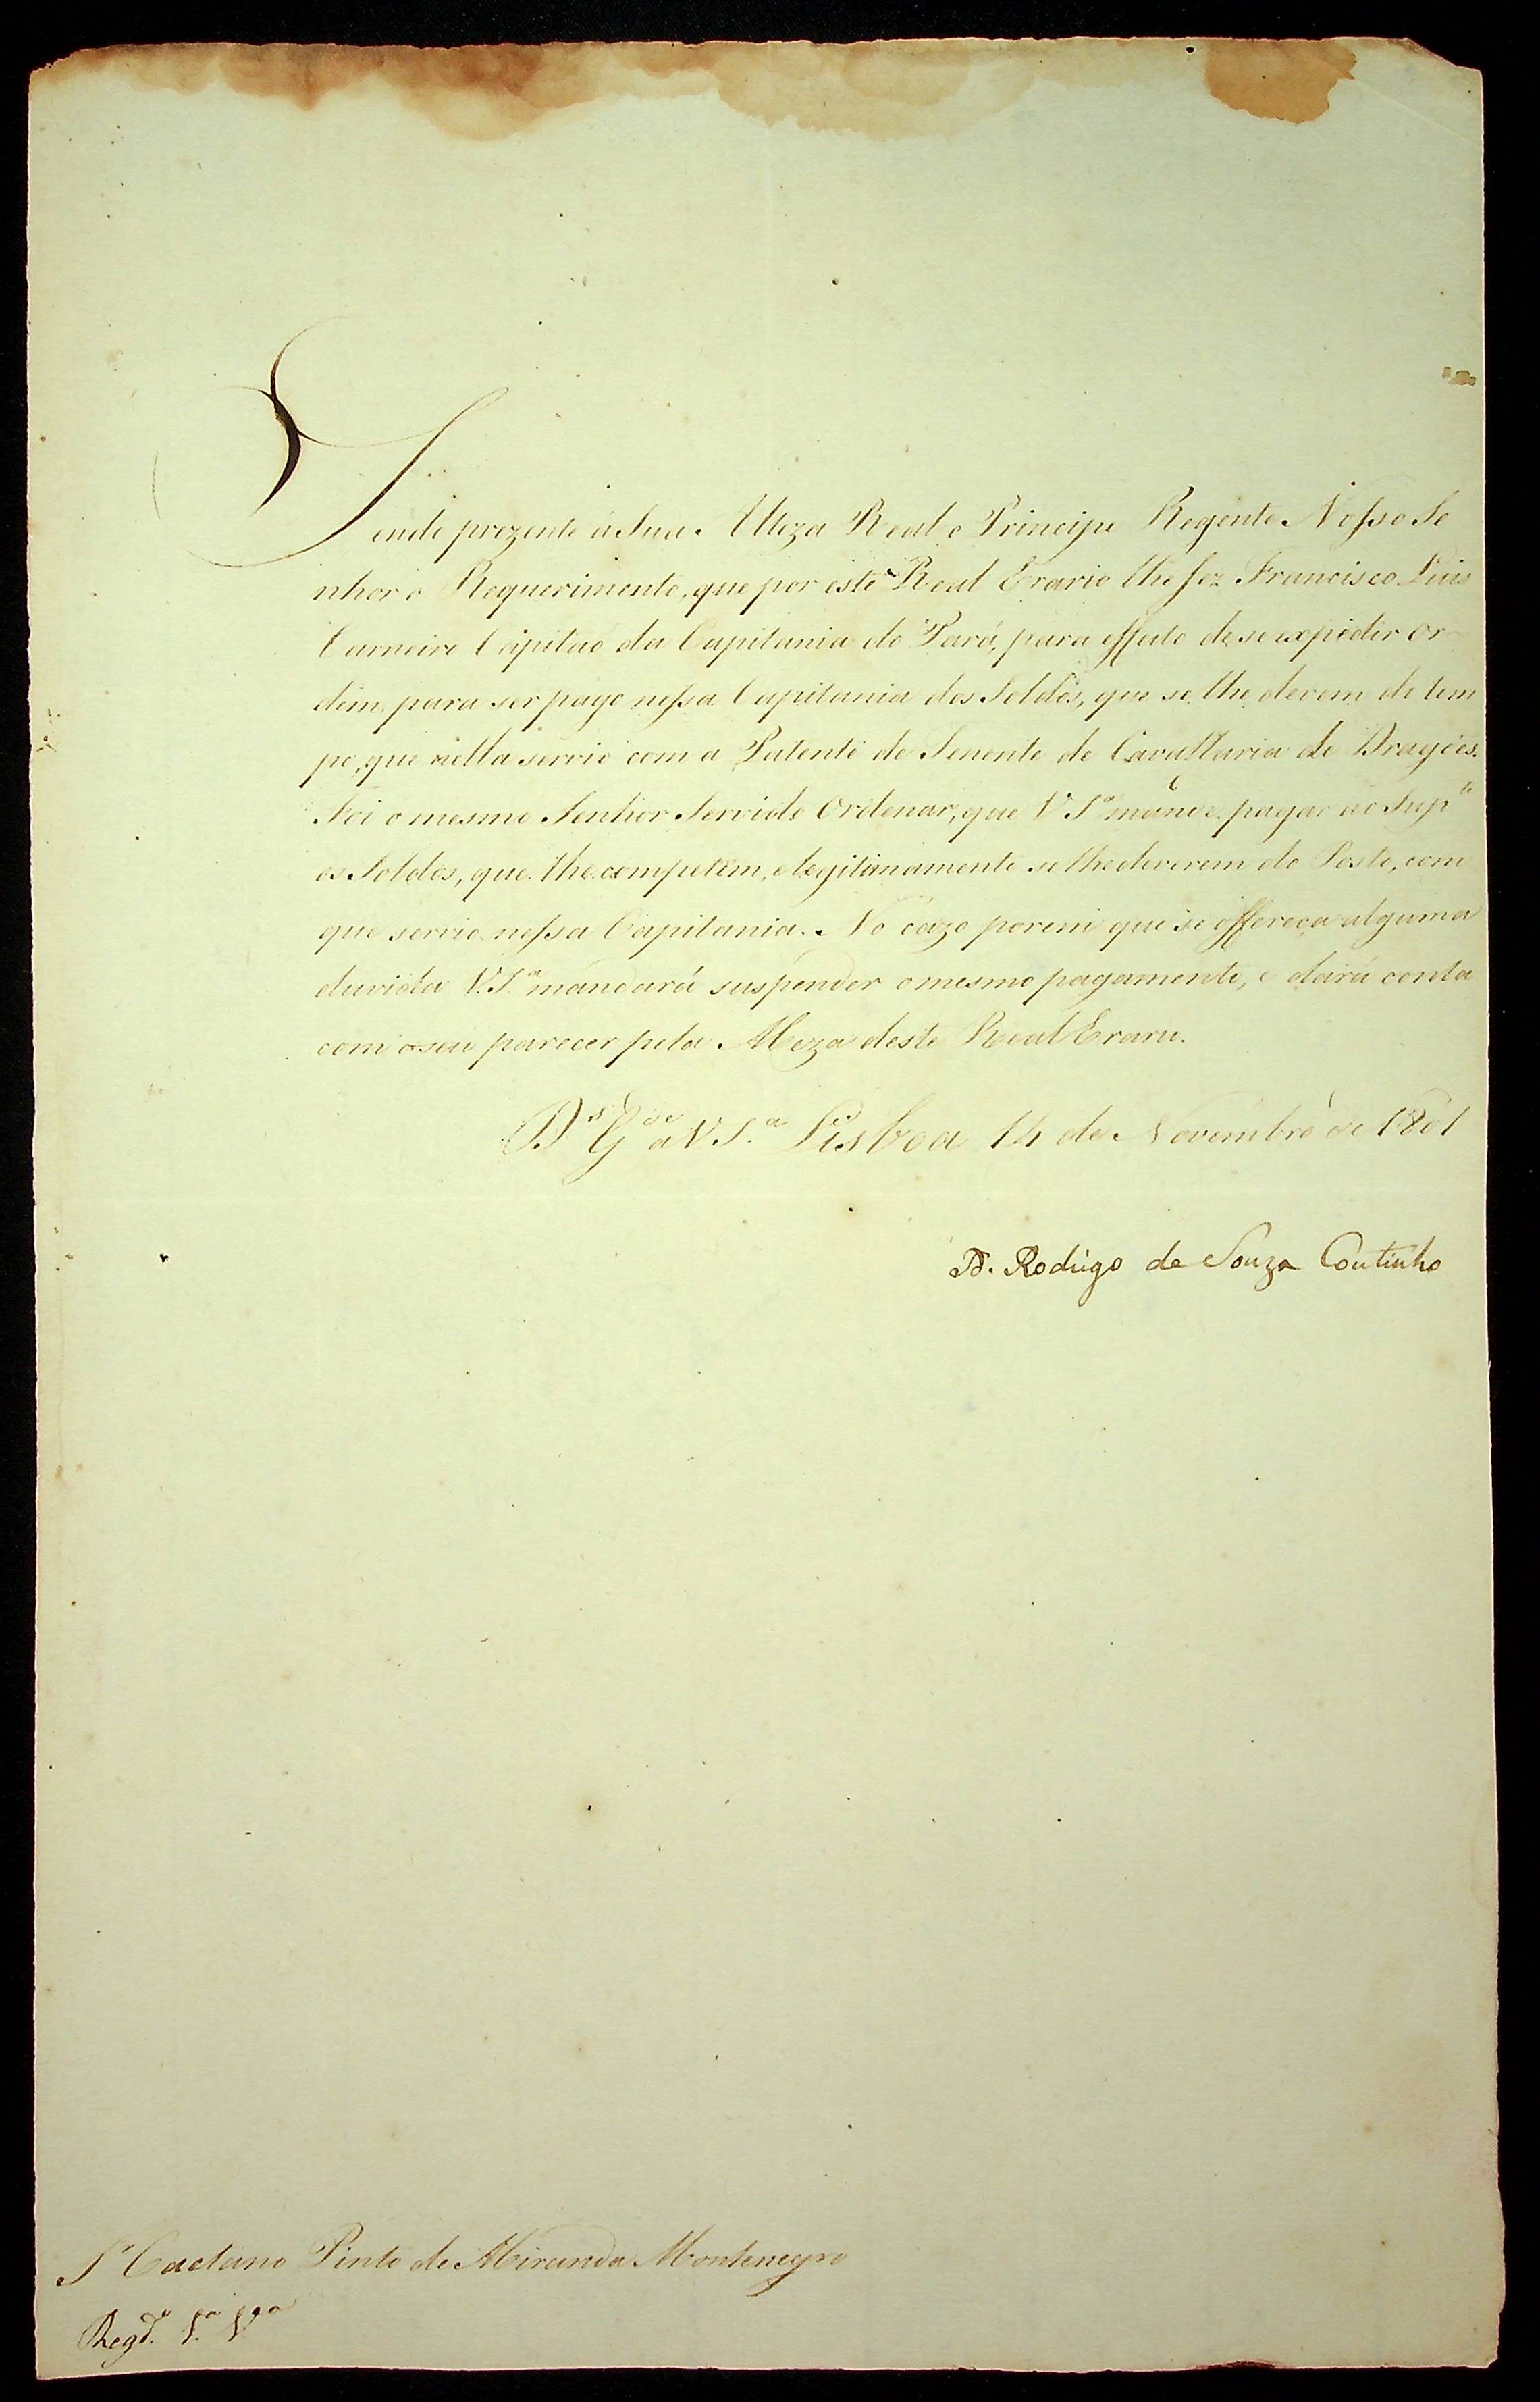 Sendo prezente a Sua Alteza Real o Principe Regente Nosso Se
nhor o Requerimento, que por este Real Erario lhe fez Francisco Luis
Carneiro Capitao da Capitania do Pará, para effeito de se expedir or
dem para ser pago nessa Capitania dos Soldos, que se lhe devem do tem
po, que nella servio com a Patente de Tenente de Cavallaria de Dragões.
Foi o mesmo Senhor Servido Ordenar, que V S.ª mande pagar ao Sup.te
os Soldos, que lhe competem, e legitimamente se lhe deverem do Posto, com
que servio nessa Capitania. No cazo porem que se offereça alguma
duvida V. S.ª mandará suspender o mesmo pagamento, e dará conta
com o seu parecer pela Meza deste Real Erario.
D.s G.de a V S.ª Lisboa 14 de Novembro de 1801
D. Rodrigo de Souza Coutinho
S.r Caetano Pinto de Miranda Montenegro
Reg.do